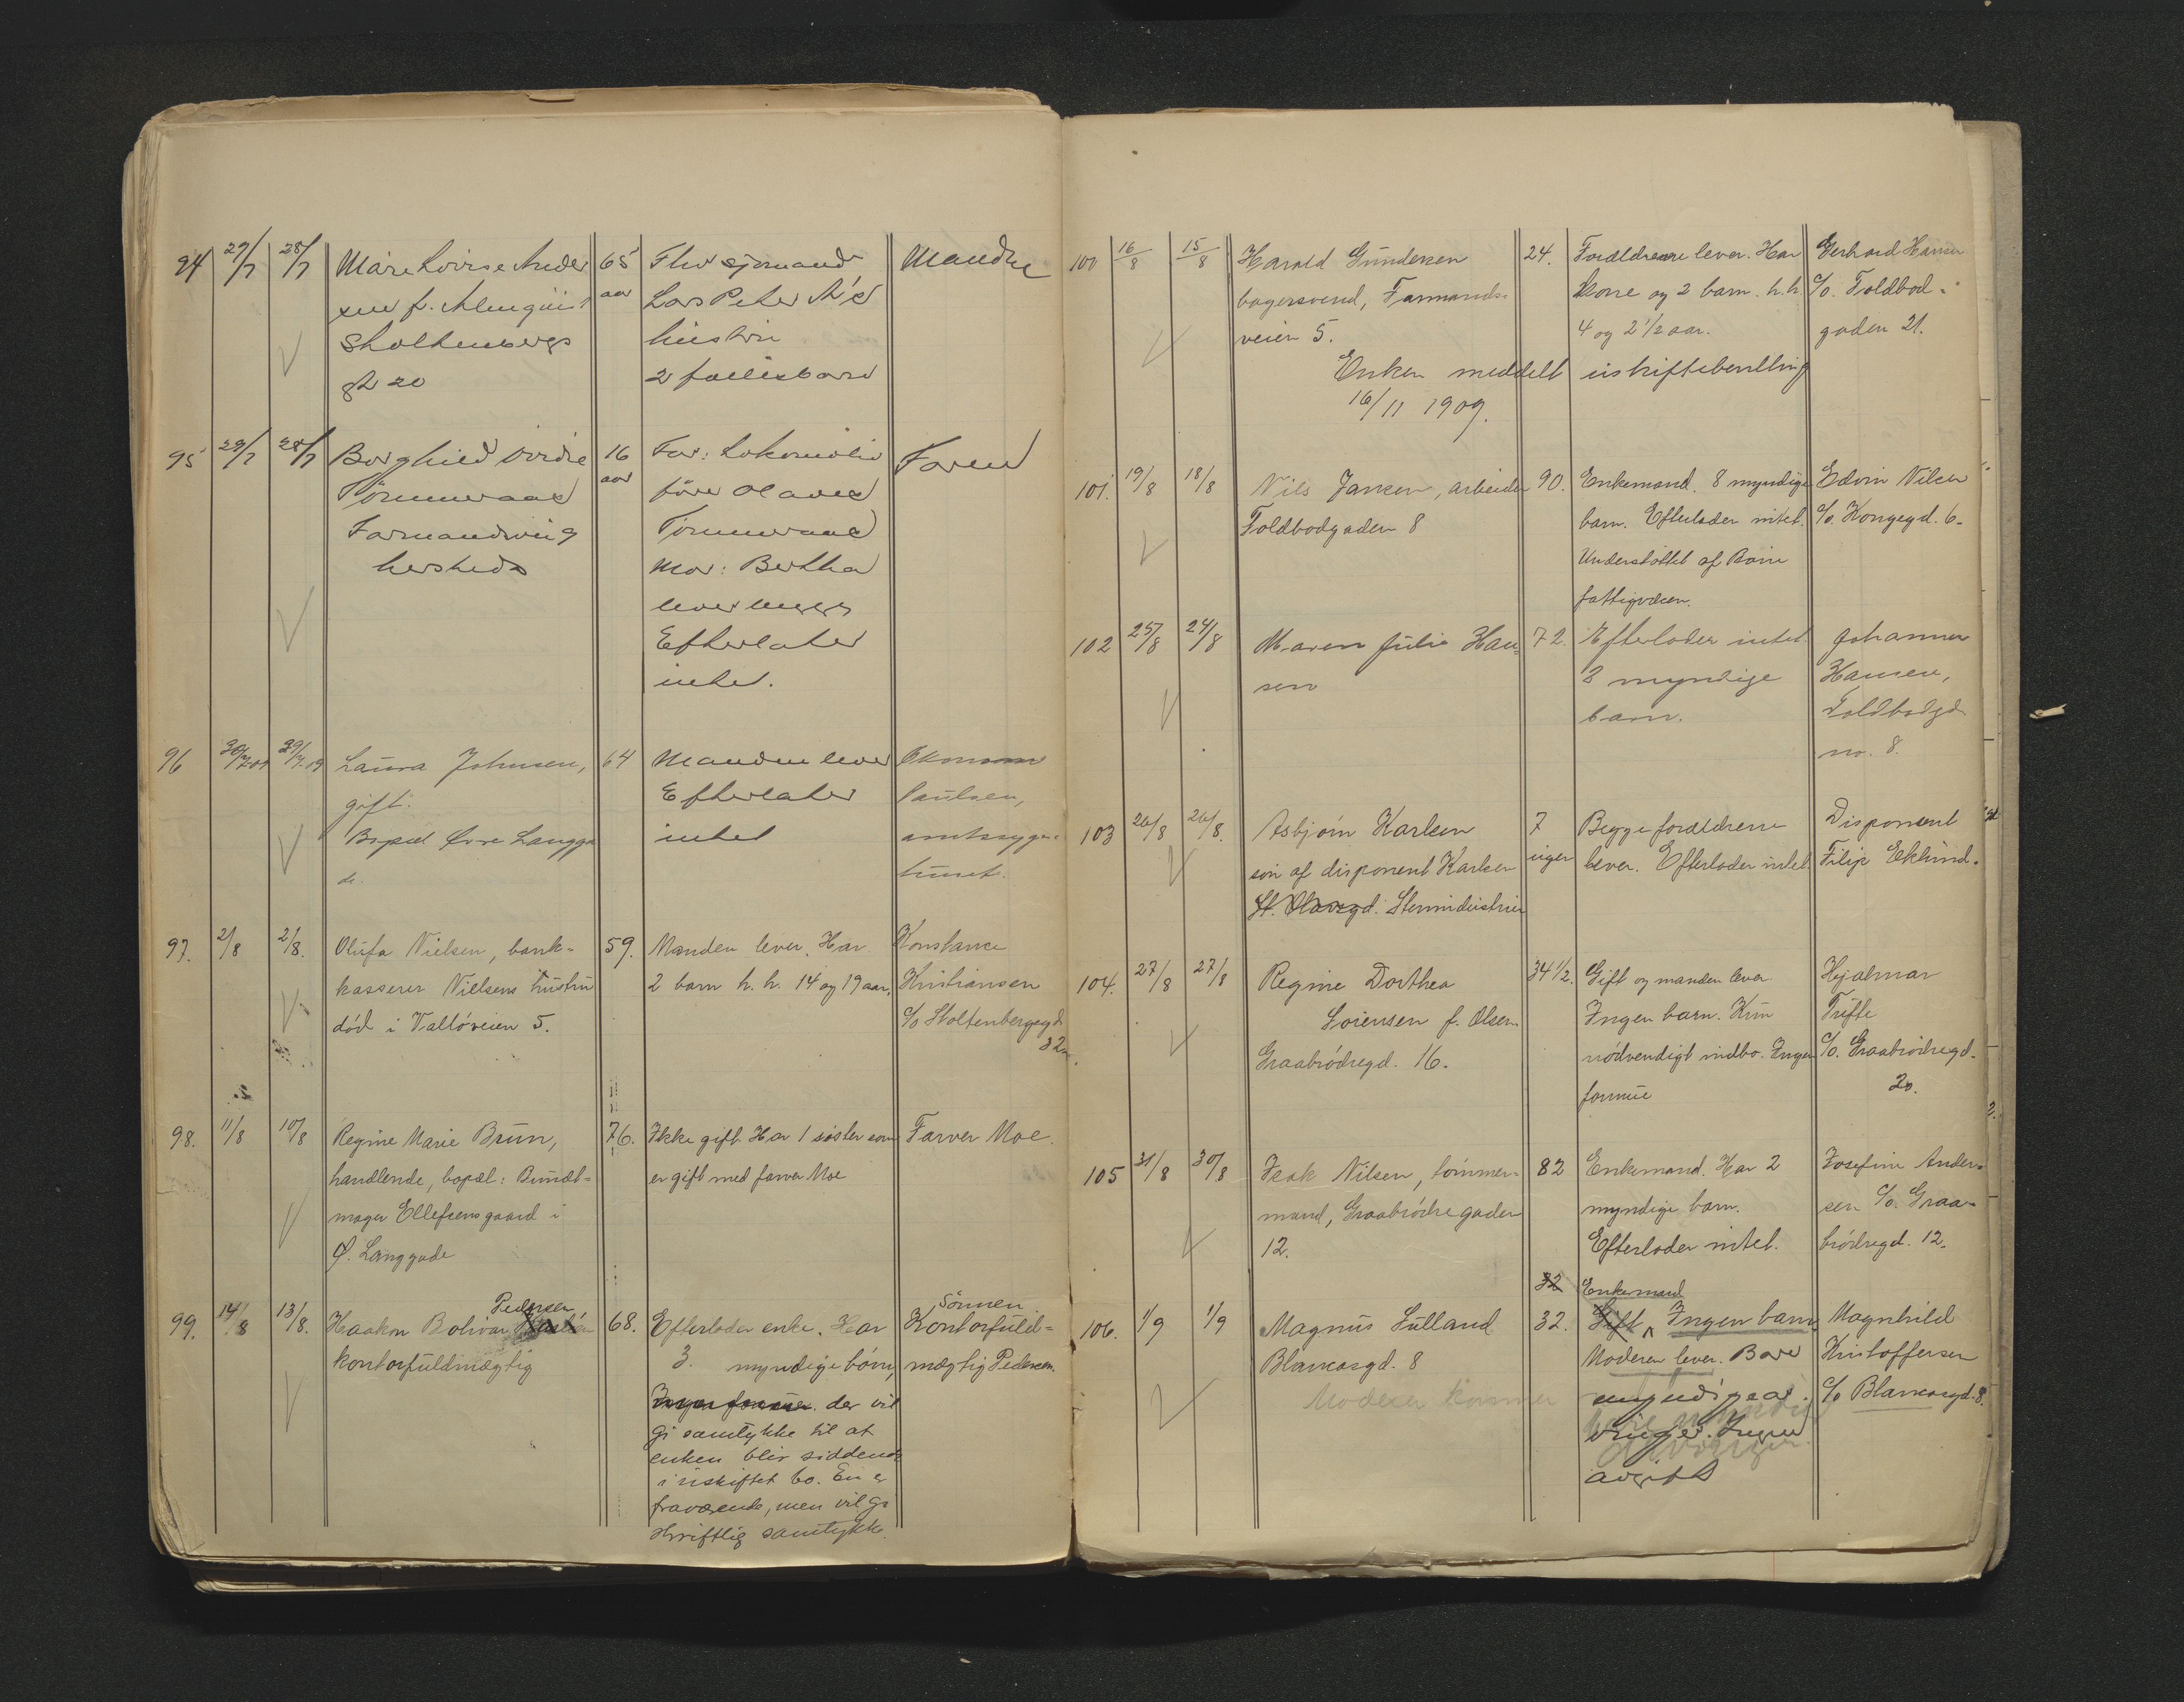 94 29/7 28/7 Marie Lovise Ander 65 Fhv sjømand Manden
sen f. Almquist aar Lars Peter A's
Stoltenbergs hustru
gt 20 2 fællesbarn
95 29/7 28/7 Borghild 16 Far: Lokomotiv Faren
aar fører Olaves
Farmandsvei 9
hersteds Mor: Bertha
lever
Efterlater
intet.
96 30/7-09 29/7-09 Laura Johnsen, 64 Manden lever Økonom
gift. Efterlater Paulsen,
Bopæl Øvre Langga intet amtssyge-
de. huset.
97. 2/8 2/8. Olufa Nielsen, bank- 59. Manden lever. Har Konstance
kasserer Nielsens hustru 2 barn h. h. 14 og 19 aar. Kristiansen
død i Valløveien 5. c/o Stoltenbergsgd
32
98. 11/8 10/8 Regine Marie Bruun, 76. Ikke gift. Har 1 søster som Farver Moe.
handlende, bopæl: Bundt- er gift med farver Moe
mager Ellefsens gaard i
Ø. Langgade
Pedersen Sønnen
99. 14/8 13/8. Haakon Bolivar 68. Efterlader enke. Har Kontorfuld-
kontorfuldmægtig 3. myndige børn, mægtig Pedersen.
Ingen formue. der vil
gi samtykke til at
enken blir siddende
i uskiftet bo. En er
fraværende, men vil gi
skriftlig samtykke.
100 16/8 15/8 Harald Gundersen 24. Forældrene lever. Har Gerhard Hansen
bagersvend, Farmands- kone og 2 barn. h. h. c/o. Toldbod-
veien 5. 4 og 2 1/2 aar. gaden 21.
Enken meddelt uskiftebevilling
16/11 1909.
101. 19/8 18/8 Nils Jansen, arbeider 90. Enkemand. 8 myndige Edvin Nilsen
Toldbodgaden 8 barn. Efterlader intet. c/o. Kongegd. 6.
Understøttet af Borre
fattigvæsen.
102 25/8 24/8 Maren Julie Han- 72. Efterlader intet Johannes
sen 3 myndige Hansen,
barn. Toldbodgd
no. 8.
103 26/8 26/8. Asbjørn Karlsen 7 Begge forældrene Disponent
søn af disponent Karlsen uger lever. Efterlader intet. Filip Eklund.
St. Olavsgd. Stenindustrien
104. 27/8 27/8 Regine Dorthea 34 1/2. Gift og manden lever Hjalmar
Sørensen f. Olsen Ingen barn. Kun Tufte
Graabrødregd. 16. nødvendigt indbo. Ingen c/o. Graabrødregd.
formue 20.
105 31/8 30/8 Isak Nilsen, tømmer- 82 Enkemand. Har 2 Josefine Ander-
mand, Graabrødregaden myndige barn. sen c/o. Graa-
12. Efterlader intet. brødregd. 12.
32 Enkemand
106. 1/9 1/9 Magnus Sulland 32. Gift Ingen barn Magnhild
Blancasgd. 8 Moderen lever. Bare Kristoffersen
Moderen kommer myndige ar- c/o Blancasgd. 8.
vinger. Ingen
avgift